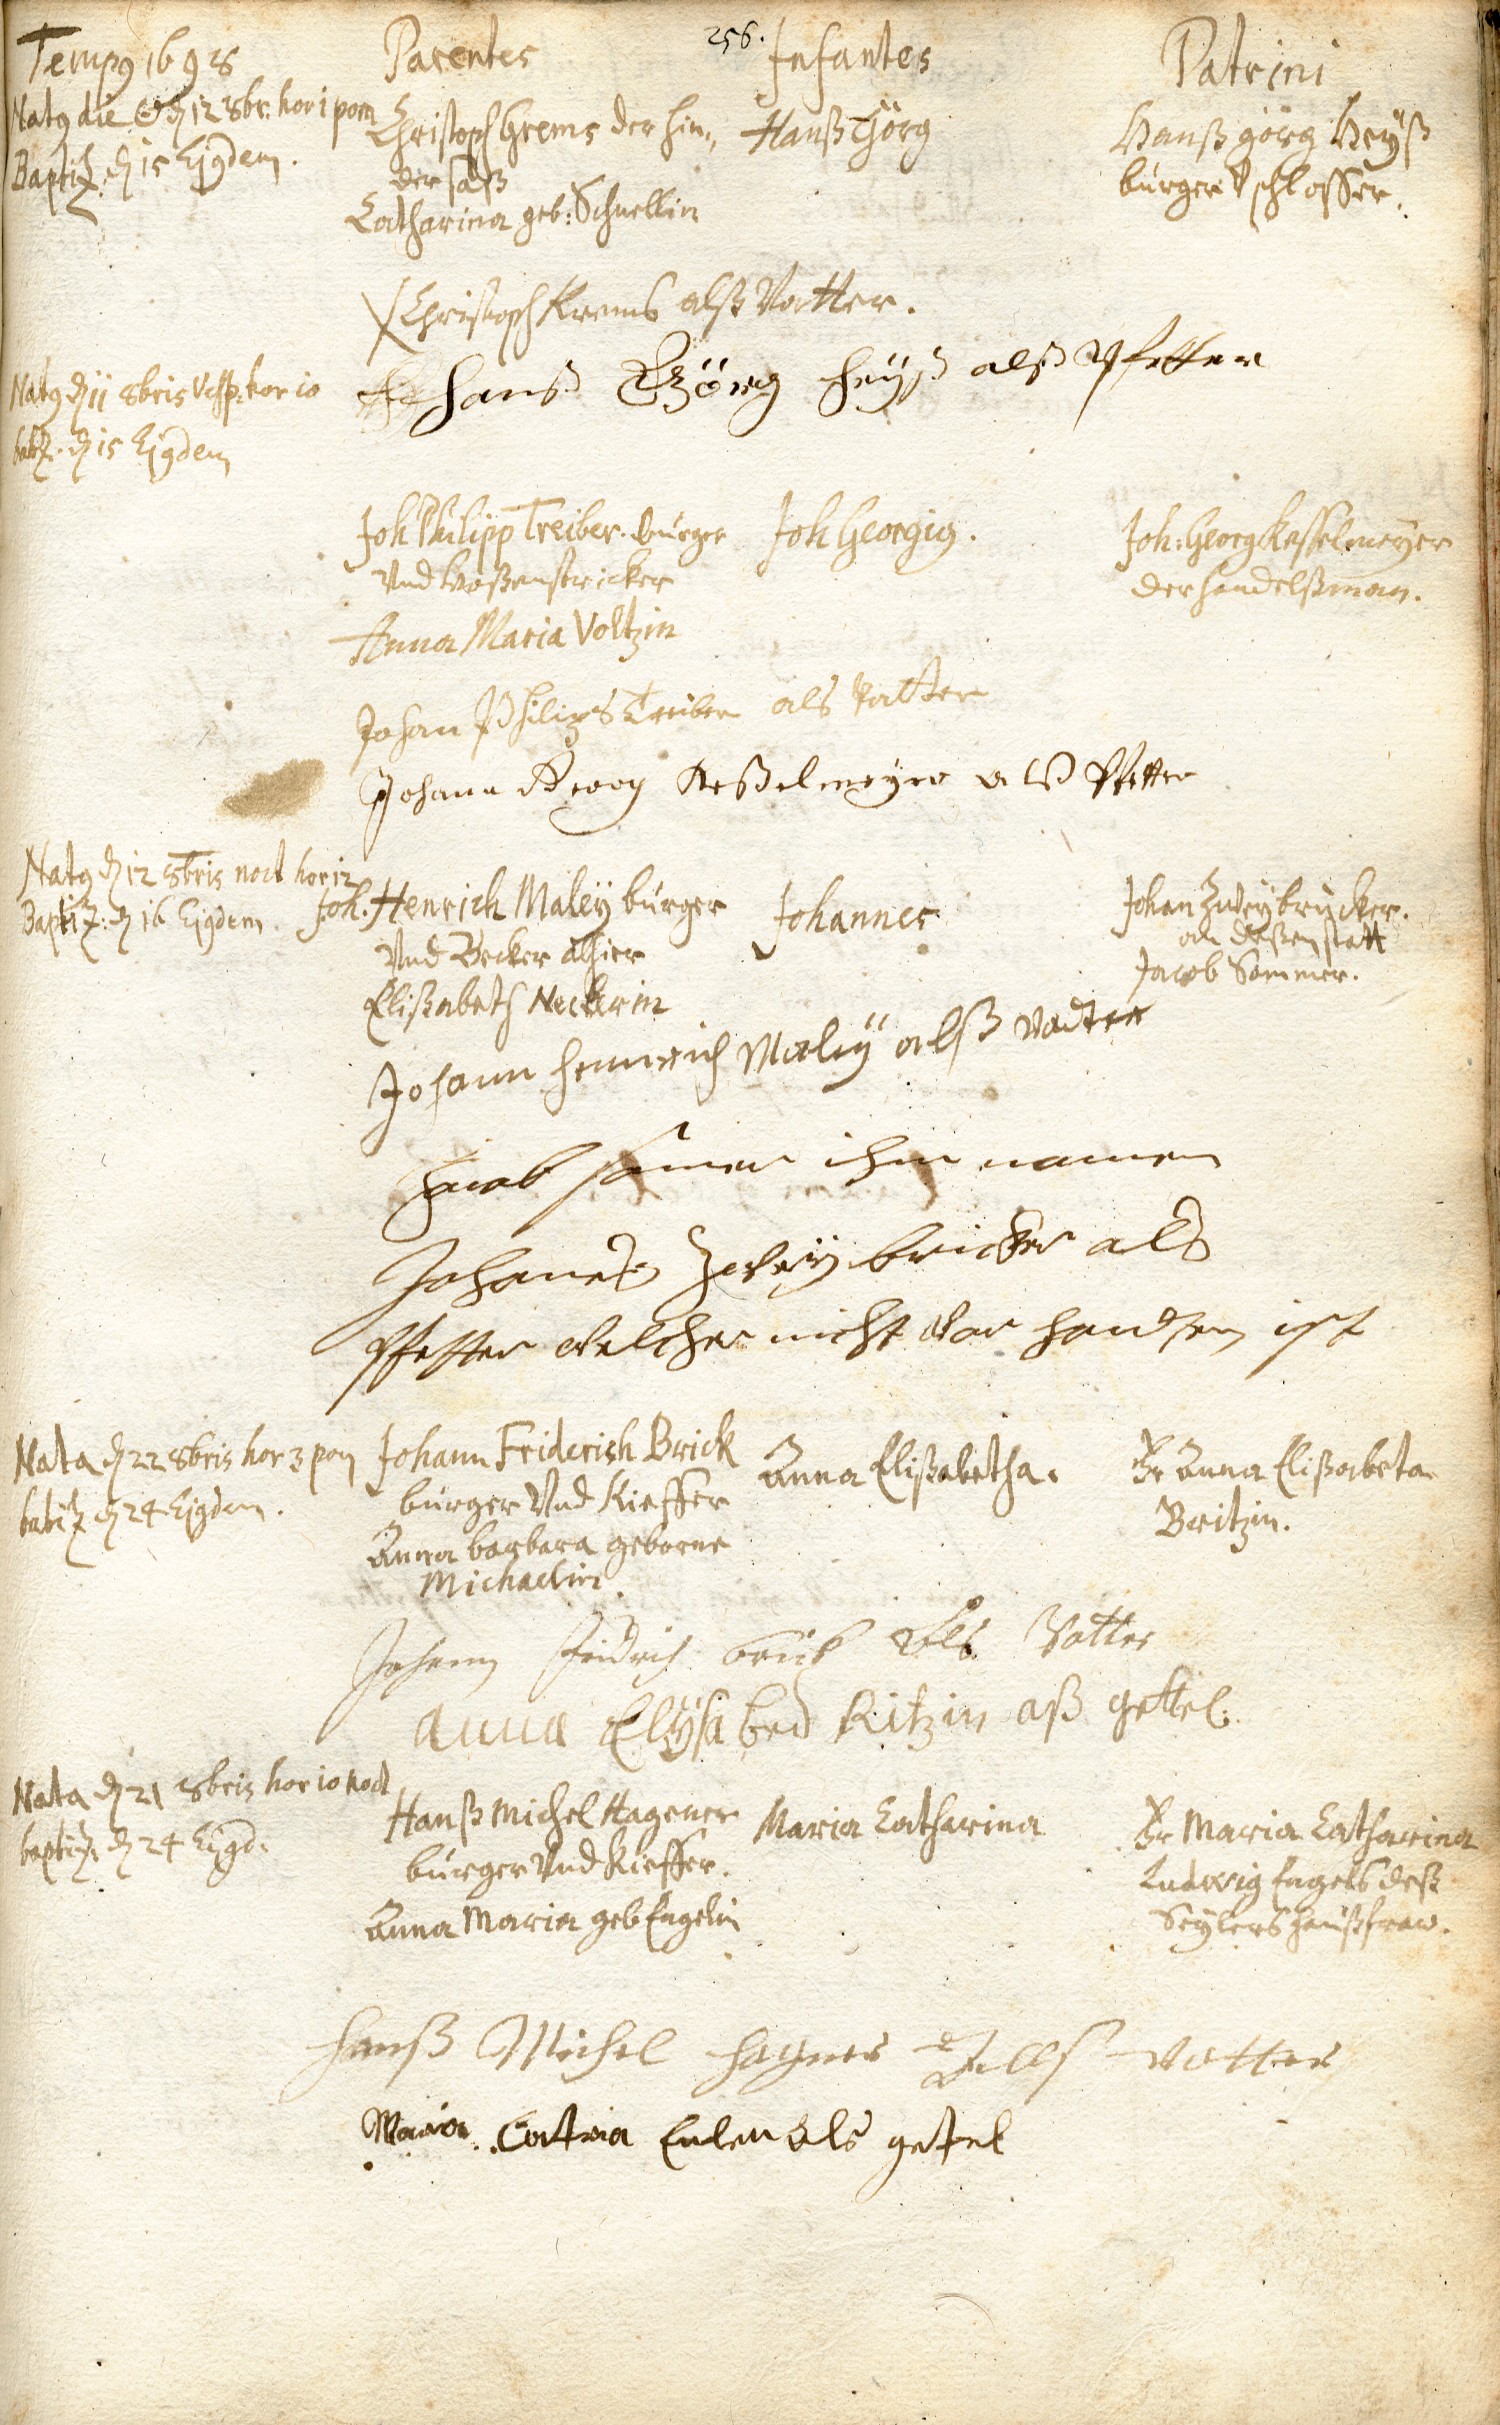 256.
Temp9 1698
Parentes
Infantes
Patrini
Nat9 die d 12 8br. hor 1 pom
Baptiz. d 15 Ejgdem.
Christoph Grems der hin„
der saß
Catharina geb: Schnellin
Hanß Görg
Hanß görg Heyß
burger V schlosser.
Christoph Krems alß Vatter.
hanß Görg heyß alß Pfetter
Nat9 d 11 8bris Vesp. hor 10
batiz. d 15 Ejgdem
Joh Philipp Treiber. burger
Vnd hoßenstricker
Anna Maria Voltzin
Joh Georgi9.
Joh: Georg Kesselmeyer
der handelßman.
Johan Philips Treiber als Vatter
Johann Georg Keßelmeyer alß Pfetter
Nat9 d 12 8bris noct hor 12
Baptiz: d 16 Ejgdem
Joh. Henrich Maley burger
Vnd Becker alhier
Elisabeth Neckerin
Johannes
Johan Zweybrucker.
an deßen statt
Jacob Sommer.
Johann henrich Maley alß vadter
Jacob somer ihm namen
Johanes Zweybricker als
Pfetter welcher nicht vor handen ist
Nata d 22 8bris hor 3 pom
batiz d 24 Ejgdem.
Johann Friderich Brick
burger Vnd Kieffer
Anna barbara geborne
Michaelin.
Anna Elisabetha.
Fr Anna Elisabeta
Britzin.
Johann fridrich brück als Vatter
anna Elÿsabed Ritzin aß gettel.
Nata d 21 8bris hor 10 noct
baptiz. d 24 Ejgd.
Hanß Michel Hagener
burger Vnd Kieffer.
Anna Maria geb Engelin
Maria Catharina
Fr Maria Catharina
Ludwig Engels deß
Seylers haußfraw.
hanß Michel hagner Allß vatter
Maria Catria Enlen als getel